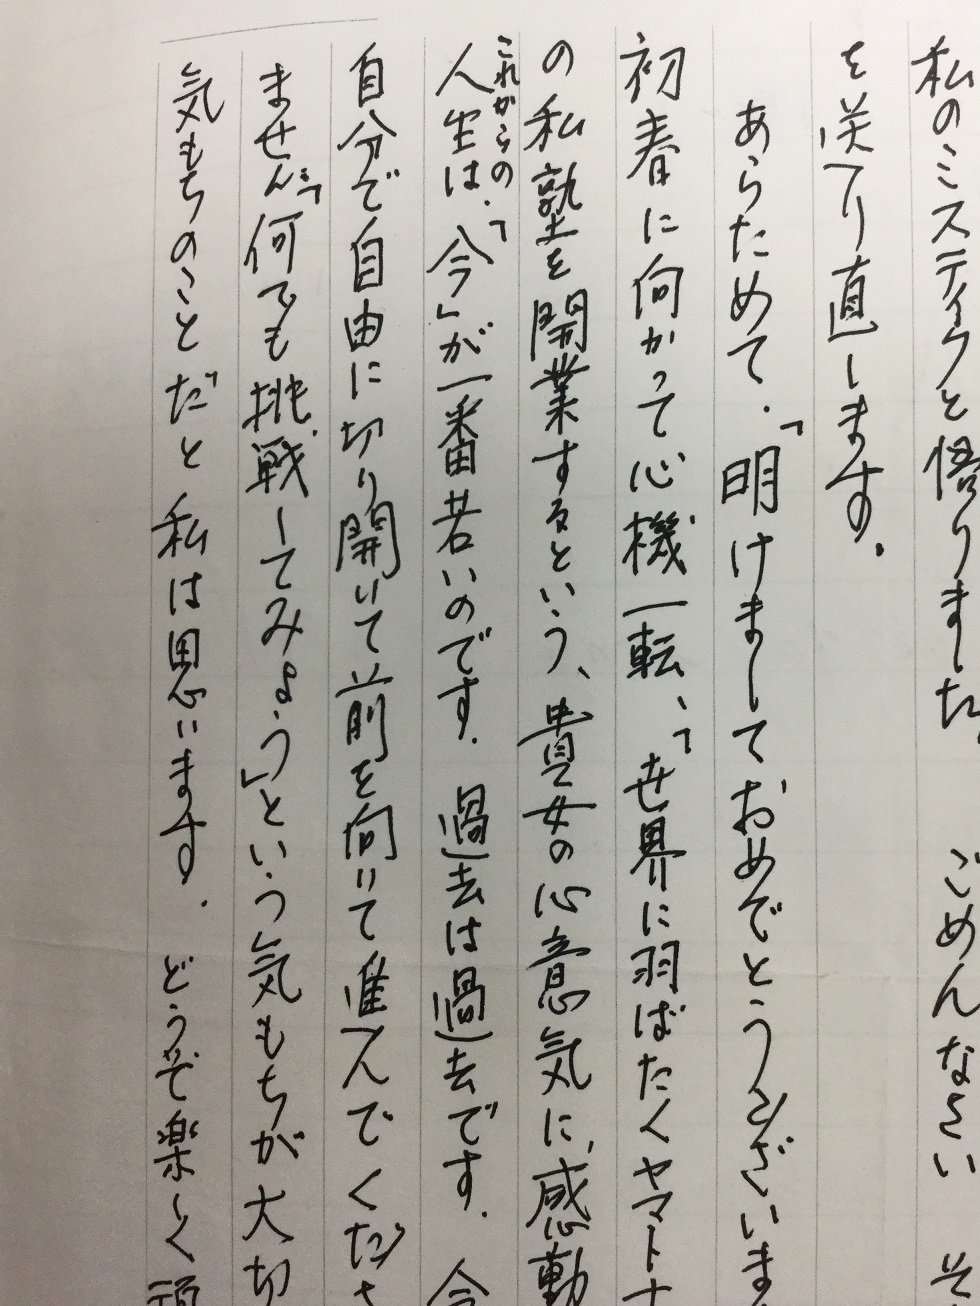 私のミスティクと悟りました。 ごめんなさい そ
を送り直します。
あらためて、「明けましておめでとうございま
初春に向かって心機一転、「世界に羽ばたくヤマトナ
の私塾を開業するという、貴女の心意気に、感動
これからの
人生は、「今」が一番若いのです。 過去は過去です。 今
自分で自由に切り開いて前を向けて進んでくださ
ません。「何でも挑戦してみよう」という気もちが大切
気もちのことだと私は思います。 どうぞ楽しく頑